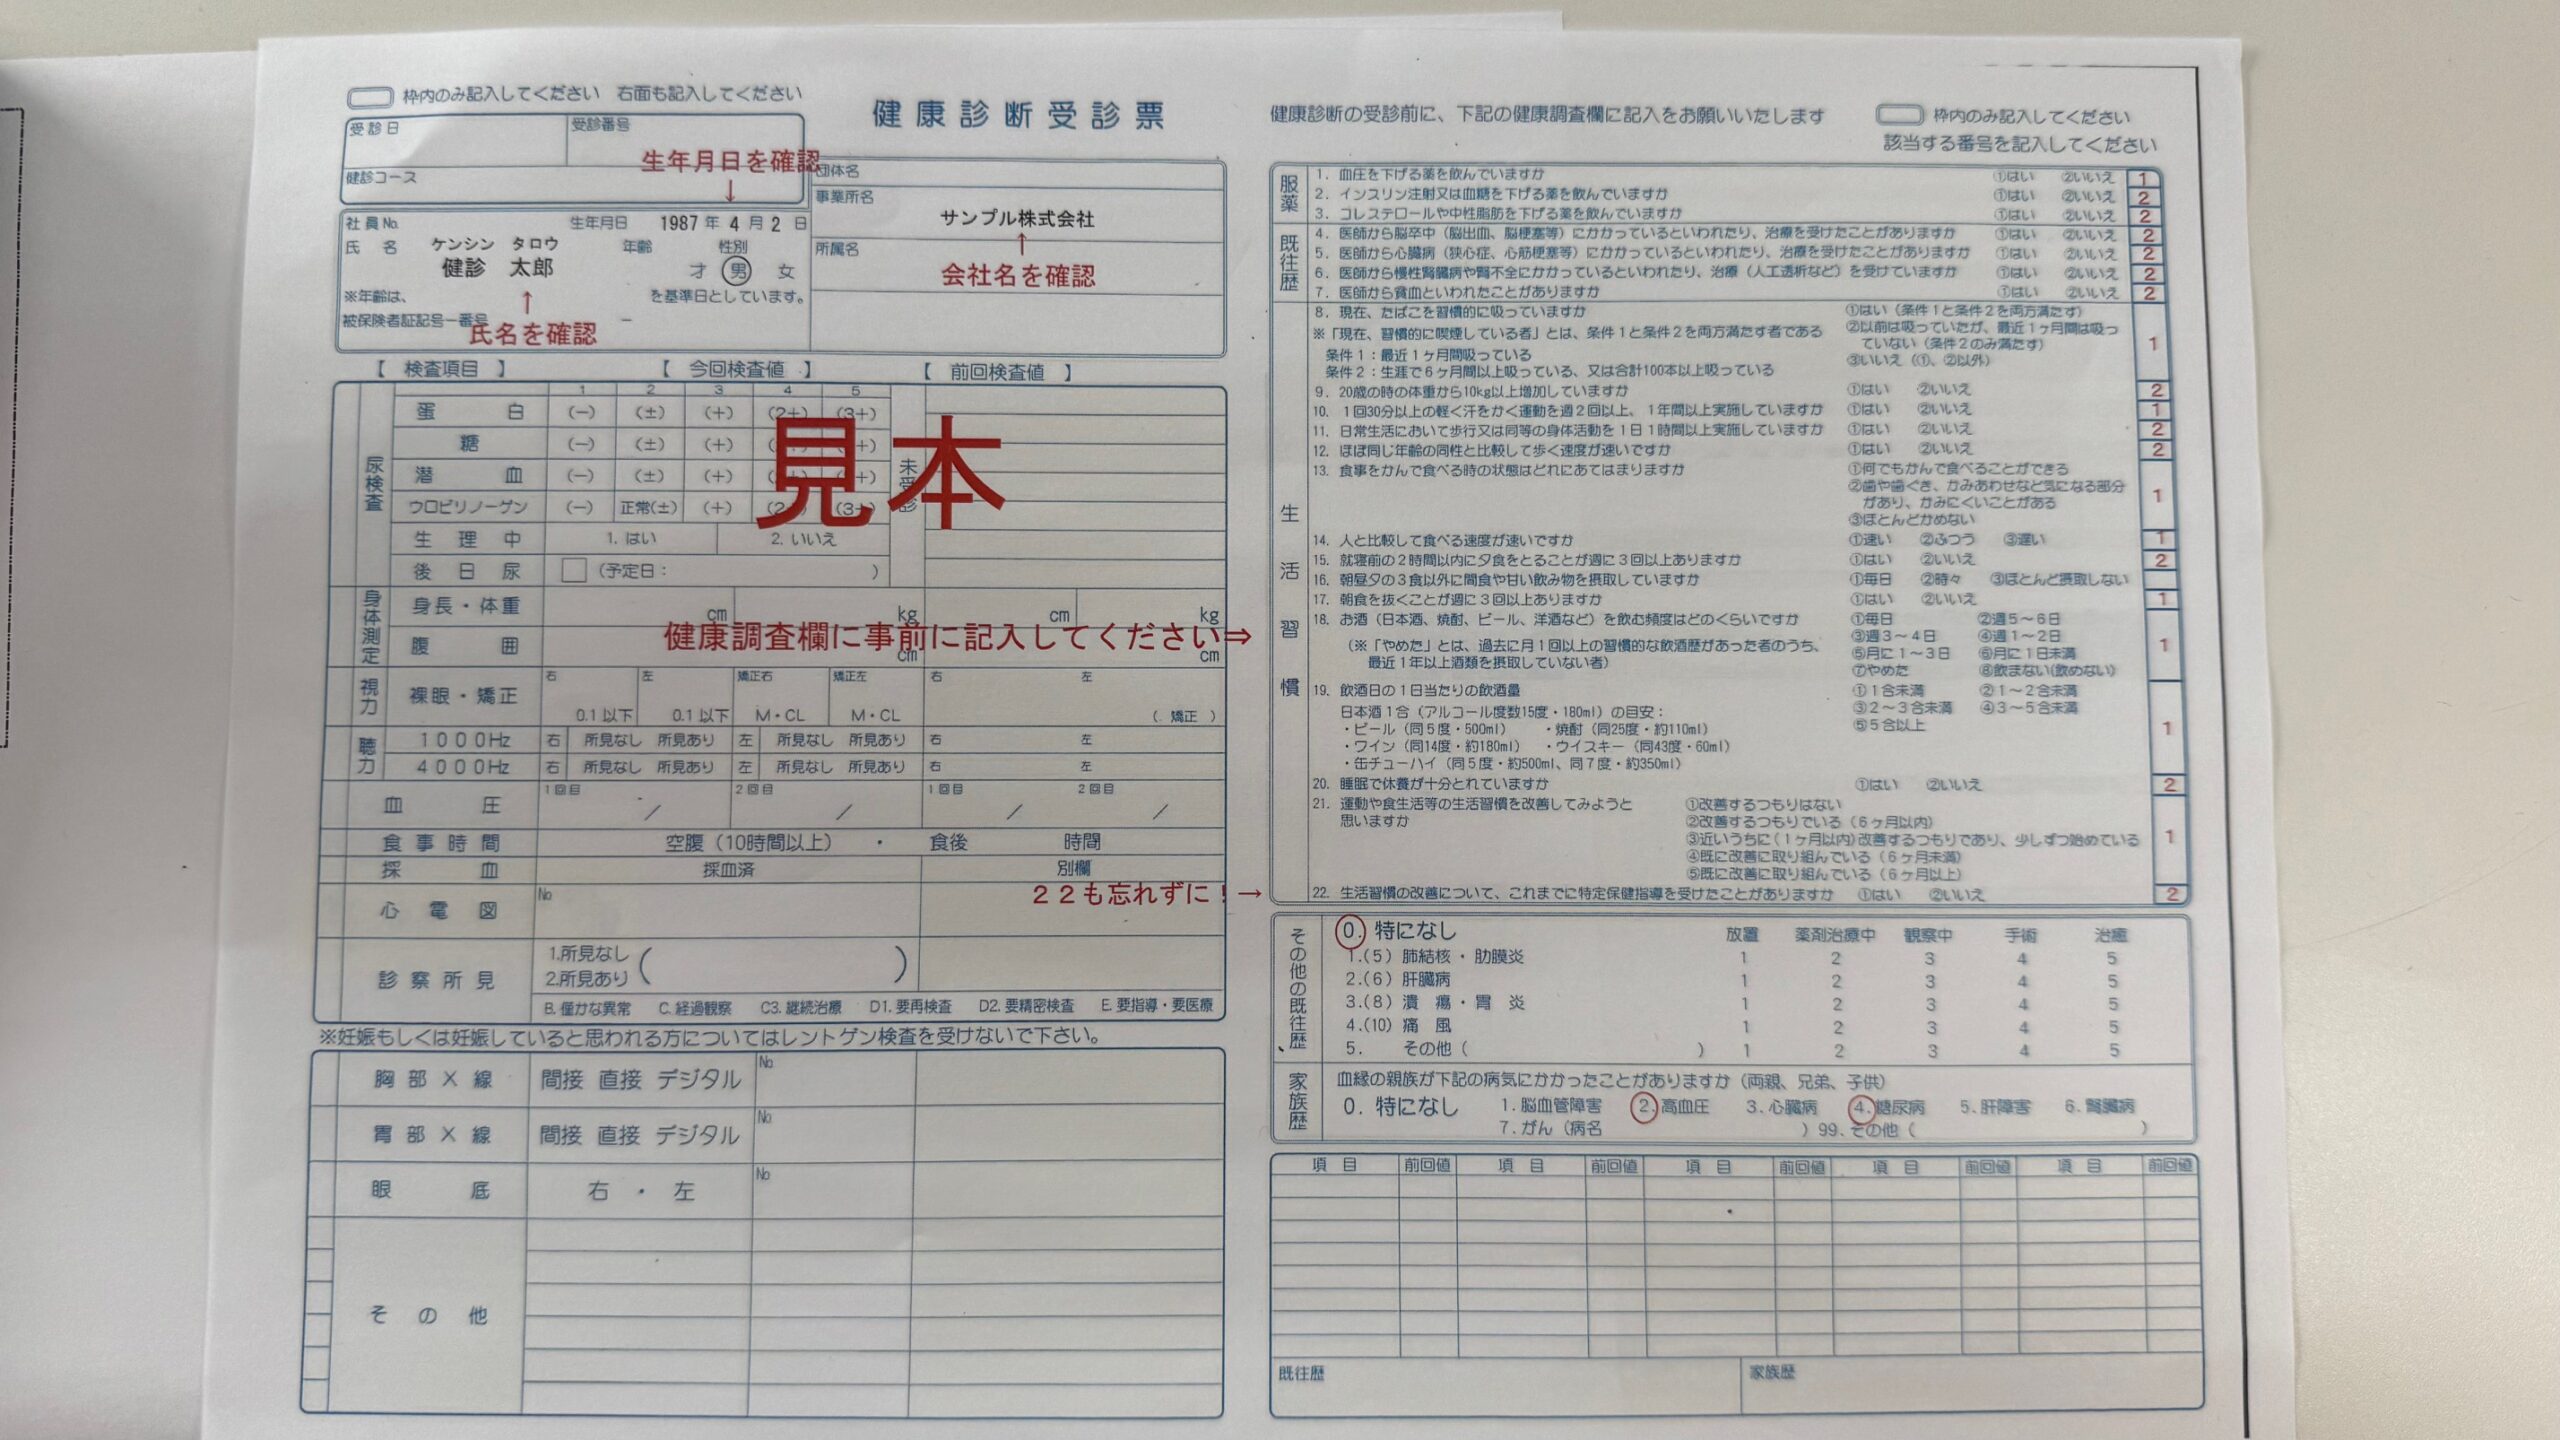 枠内のみ記入してください　右面も記入してください
健康診断受診票
受診日　受診番号
生年月日を確認
↓
健診コース
団体名
事業所名
サンプル株式会社
↑
会社名を確認
所属名
社員No.　生年月日　1987年 4月 2日
ケンシン　タロウ
氏名　健診　太郎　年齢　才　性別　男　女
↑
※年齢は、　を基準日としています。
被保険者証記号ー番号　－
氏名を確認
【 検査項目 】　【 今回検査値 】　【 前回検査値 】
1　2　3　4　5
尿検査
蛋白　(−)　(±)　(+)　(2+)　(3+)
糖　(−)　(±)　(+)
潜血　(−)　(±)　(+)
ウロビリノーゲン　(−)　正常(±)　(+)　(3+)
未受診
見本
生理中　1. はい　2. いいえ
後日尿　□　(予定日：　)
身体測定
身長・体重　cm　kg　cm　kg
健康調査欄に事前に記入してください⇒
腹囲　cm　cm
視力
裸眼・矯正　右　0.1以下　左　0.1以下　矯正右　M・CL　矯正左　M・CL　右　左　(. 矯正 )
聴力
1000Hz　右　所見なし　所見あり　左　所見なし　所見あり　右　左
4000Hz　右　所見なし　所見あり　左　所見なし　所見あり　右　左
血圧　1回目　／　2回目　／　1回目　／　2回目　／
食事時間　空腹（10時間以上）・　食後　時間
採血　採血済　別欄
２２も忘れずに！→
心電図　No
診察所見　1.所見なし
2.所見あり　(　)
B. 僅かな異常　C. 経過観察　C3. 継続治療　D1. 要再検査　D2. 要精密検査　E. 要指導・要医療
※妊娠もしくは妊娠していると思われる方についてはレントゲン検査を受けないで下さい。
胸部X線　間接 直接 デジタル　No
胃部X線　間接 直接 デジタル　No
眼底　右・左　No
その他
健康診断の受診前に、下記の健康調査欄に記入をお願いいたします
枠内のみ記入してください
該当する番号を記入してください
服薬
1. 血圧を下げる薬を飲んでいますか　①はい　②いいえ　1
2. インスリン注射又は血糖を下げる薬を飲んでいますか　①はい　②いいえ　2
3. コレステロールや中性脂肪を下げる薬を飲んでいますか　①はい　②いいえ　2
既往歴
4. 医師から脳卒中（脳出血、脳梗塞等）にかかっているといわれたり、治療を受けたことがありますか　①はい　②いいえ　2
5. 医師から心臓病（狭心症、心筋梗塞等）にかかっているといわれたり、治療を受けたことがありますか　①はい　②いいえ　2
6. 医師から慢性腎臓病や腎不全にかかっているといわれたり、治療（人工透析など）を受けていますか　①はい　②いいえ　2
7. 医師から貧血といわれたことがありますか　①はい　②いいえ　2
生活習慣
8. 現在、たばこを習慣的に吸っていますか　①はい（条件1と条件2を両方満たす）
※「現在、習慣的に喫煙している者」とは、条件1と条件2を両方満たす者である　②以前は吸っていたが、最近1ヶ月間は吸っ
ていない（条件2のみ満たす）　1
条件1：最近1ヶ月間吸っている　③いいえ（①、②以外）
条件2：生涯で6ヶ月間以上吸っている、又は合計100本以上吸っている
9. 20歳の時の体重から10kg以上増加していますか　①はい　②いいえ　2
10. 1回30分以上の軽く汗をかく運動を週2回以上、1年間以上実施していますか　①はい　②いいえ　1
11. 日常生活において歩行又は同等の身体活動を1日1時間以上実施していますか　①はい　②いいえ　2
12. ほぼ同じ年齢の同性と比較して歩く速度が速いですか　①はい　②いいえ　2
13. 食事をかんで食べる時の状態はどれにあてはまりますか　①何でもかんで食べることができる
②歯や歯ぐき、かみあわせなど気になる部分
があり、かみにくいことがある　1
③ほとんどかめない
14. 人と比較して食べる速度が速いですか　①速い　②ふつう　③遅い　1
15. 就寝前の2時間以内に夕食をとることが週に3回以上ありますか　①はい　②いいえ　2
16. 朝昼夕の3食以外に間食や甘い飲み物を摂取していますか　①毎日　②時々　③ほとんど摂取しない
17. 朝食を抜くことが週に3回以上ありますか　①はい　②いいえ　1
18. お酒（日本酒、焼酎、ビール、洋酒など）を飲む頻度はどのくらいですか　①毎日　②週5～6日
③週3～4日　④週1～2日
（※「やめた」とは、過去に月1回以上の習慣的な飲酒歴があった者のうち、　⑤月に1～3日　⑥月に1日未満　1
最近1年以上酒類を摂取していない者）　⑦やめた　⑧飲まない(飲めない)
19. 飲酒日の1日当たりの飲酒量　①1合未満　②1～2合未満
日本酒1合（アルコール度数15度・180ml）の目安：　③2～3合未満　④3～5合未満
・ビール（同5度・500ml）　・焼酎（同25度・約110ml）　⑤5合以上　1
・ワイン（同14度・約180ml）　・ウイスキー（同43度・60ml）
・缶チューハイ（同5度・約500ml、同7度・約350ml）
20. 睡眠で休養が十分とれていますか　①はい　②いいえ　2
21. 運動や食生活等の生活習慣を改善してみようと　①改善するつもりはない
思いますか　②改善するつもりでいる（6ヶ月以内）
③近いうちに（1ヶ月以内）改善するつもりであり、少しずつ始めている　1
④既に改善に取り組んでいる（6ヶ月未満）
⑤既に改善に取り組んでいる（6ヶ月以上）
22. 生活習慣の改善について、これまでに特定保健指導を受けたことがありますか　①はい　②いいえ　2
その他の既往歴
0. 特になし　放置　薬剤治療中　観察中　手術　治癒
1.(5) 肺結核・肋膜炎　1　2　3　4　5
2.(6) 肝臓病　1　2　3　4　5
3.(8) 潰瘍・胃炎　1　2　3　4　5
4.(10) 痛風　1　2　3　4　5
5.　その他（　）　1　2　3　4　5
家族歴
血縁の親族が下記の病気にかかったことがありますか（両親、兄弟、子供）
0. 特になし　1. 脳血管障害　2. 高血圧　3. 心臓病　4. 糖尿病　5. 肝障害　6. 腎臓病
7. がん（病名　）99. その他（　）
項目　前回値　項目　前回値　項目　前回値　項目　前回値　項目　前回値
既往歴　家族歴